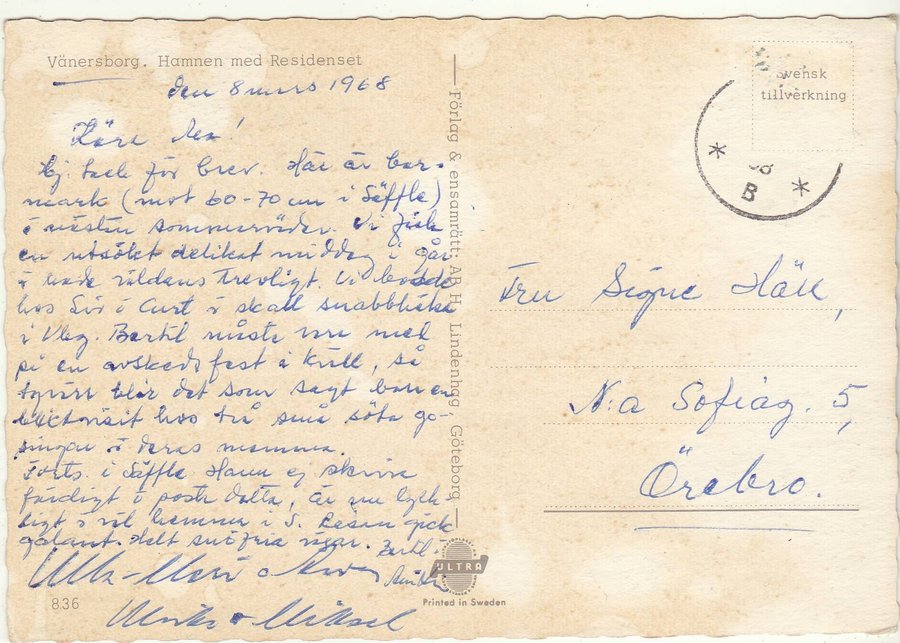 Vänersborg. Hamnen med Residenset
den 8 mars 1968
Kära
Hej! Tack för brev. Här är bar-
mark (mot 60-70 cm i Säffle)
o nästan sommarväder. Vi fick
en utsökt delikat middag i går
o hade världens trevligt. Vi bodde
hos Siv o Curt o skall snabbtitta
i Vbg. Bertil måste vara med
på en avskedsfest i kväll, så
tyvärr blir det som sagt bara en
blixtvisit hos två små söta go-
singar o deras mamma.
Forts. i Säffle. Hann ej skriva
färdigt o posta detta, är nu lyck-
ligt o väl hemma i S. Resan gick
galant. Helt snöfria vägar. Bertil
Ulla-Mari o
Ulrika o Mikael
836
Förlag & ensamrätt: AB H. Lindenhag, Göteborg
ULTRA
Printed in Sweden
Svensk
tillverkning
B
Fru Signe Häll,
N:a Sofiag. 5,
Örebro.